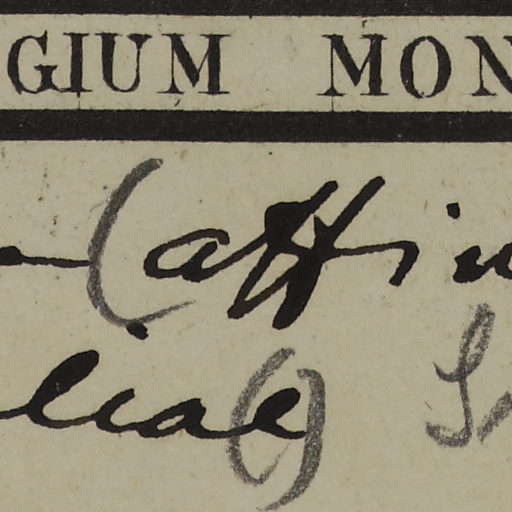 GIUM MON
(affin
liae()